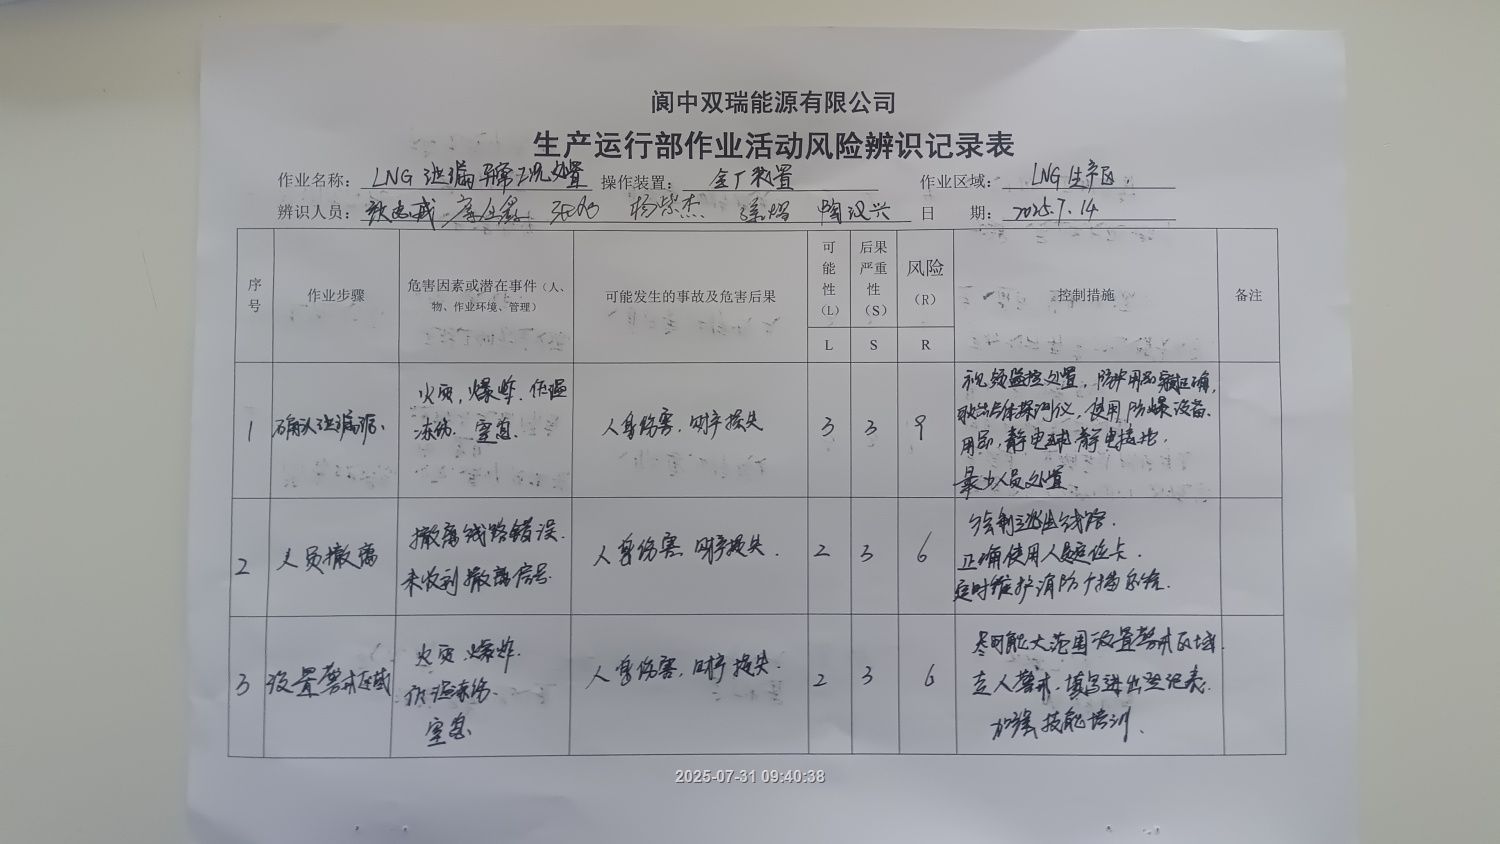 阆中双瑞能源有限公司
生产运行部作业活动风险辨识记录表
作业名称: LNG 泄漏异常工况处置 操作装置: 全厂装置 作业区域: LNG生产区
辨识人员: 杨紫杰 陶汉兴 日 期: 2025.7.14
序号 作业步骤 危害因素或潜在事件（人、物、作业环境、管理） 可能发生的事故及危害后果 可能性（L） 后果严重性（S） 风险（R） 控制措施 备注
L S R
1 确认泄漏源、 火灾, 爆炸. 低温 人身伤害. 财产损失 3 3 9 视频监控处置, 防护用品穿戴正确,
冻伤. 窒息. 气体探测仪, 使用防爆设备、
用品, 静电球静电接地,
最少人员处置.
2 人员撤离 撤离线路错误. 人身伤害. 财产损失. 2 3 6 绘制逃生线路.
未收到撤离信号. 正确使用人员定位卡.
定时维护消防广播系统.
3 设置警戒区域 火灾. 爆炸. 人身伤害. 财产损失. 2 3 6 尽可能大范围设置警戒区域.
低温冻伤. 专人警戒. 填写进出登记表.
窒息. 加强技能培训.
2025-07-31 09:40:38